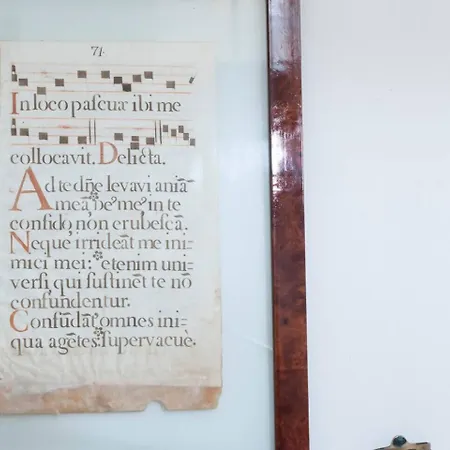 71.
In loco pascuæ ibi me
collocavit. Delicta.
Ad te dñe levavi aniã
meã, Deꝰ meꝰ, in te
confido, non erubescã.
Neque irrideãt me ini-
mici mei: etenim uni-
versi qui sustinẽt te nõ
confundentur.
Confũdãt omnes ini-
qua agẽtes supervacuè.